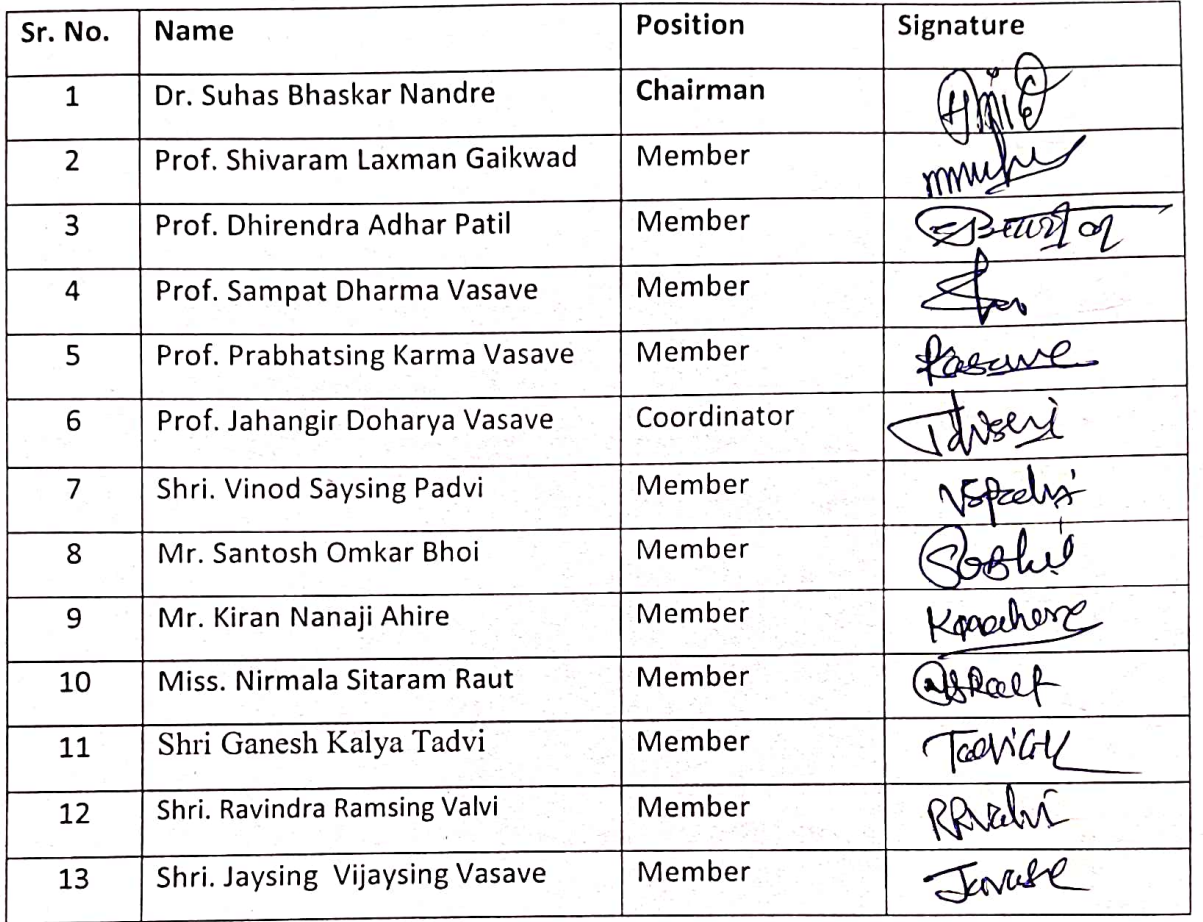 Sr. No. Name Position Signature
1 Dr. Suhas Bhaskar Nandre Chairman
2 Prof. Shivaram Laxman Gaikwad Member
3 Prof. Dhirendra Adhar Patil Member
4 Prof. Sampat Dharma Vasave Member
5 Prof. Prabhatsing Karma Vasave Member
6 Prof. Jahangir Doharya Vasave Coordinator
7 Shri. Vinod Saysing Padvi Member VSPadvi
8 Mr. Santosh Omkar Bhoi Member
9 Mr. Kiran Nanaji Ahire Member
10 Miss. Nirmala Sitaram Raut Member
11 Shri Ganesh Kalya Tadvi Member TadviGK
12 Shri. Ravindra Ramsing Valvi Member RRValvi
13 Shri. Jaysing Vijaysing Vasave Member